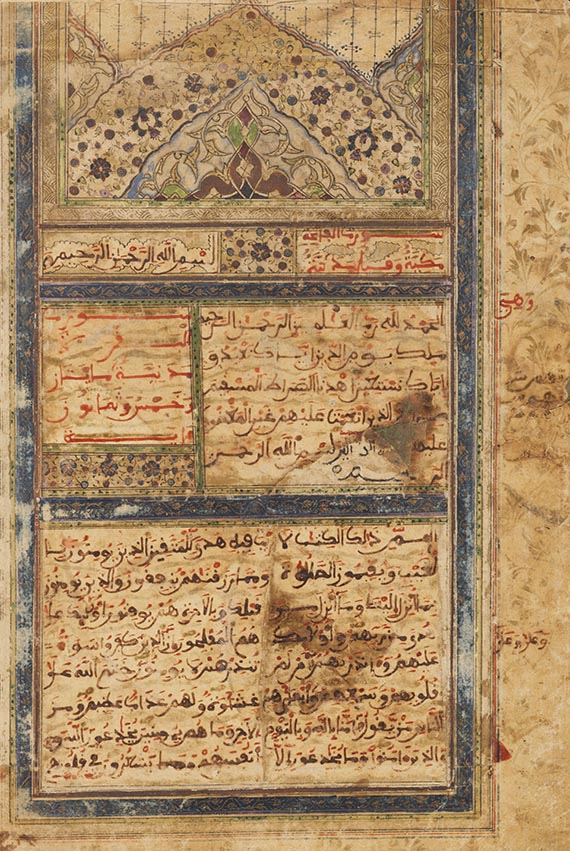 سورة الفاتحة
مكية وقيل مدنية
بسم الله الرحمن الرحيم
وهي
الحمد لله رب العلمين الرحمن الرحيم
ملك يوم الدين اياك نعبد و
اياك نستعين اهدنا الصراط المستقيم
صراط الذين انعمت عليهم غير المغضوب
عليهم ولا الضالين بسم الله الرحمن
الرحيم
سورة
البقرة
مدنية مايتان
وخمس وثمانون
اية
الم ذلك الكتب لا ريب فيه هدى للمتقين الذين يومنون با
لغيب ويقيمون الصلوة ومما رزقنهم ينفقون والذين يومنون
بما انزل اليك وما انزل من قبلك وبالاخرة هم يوقنون اوليك على
هدى من ربهم واوليك هم المفلحون ان الذين كفروا سواء
عليهم ءانذرتهم ام لم تنذرهم لا يومنون ختم الله على
قلوبهم وعلى سمعهم وعلى ابصرهم غشوة ولهم عذاب عظيم ومن
الناس من يقول امنا بالله وباليوم الاخر وما هم بمومنين يخدعون الله و
الذين امنوا وما يخدعون الا انفسهم وما يشعرون في قلوبهم